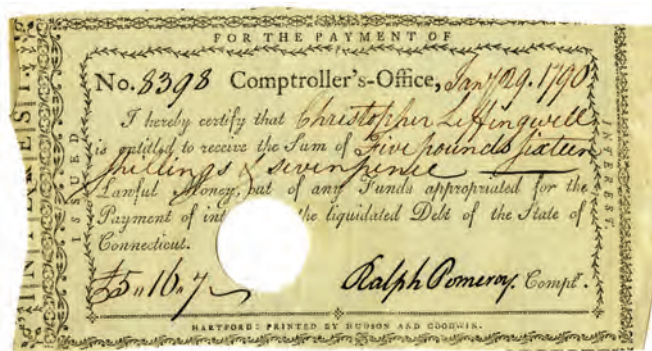 FOR THE PAYMENT OF
No. 8398 Comptroller's-Office, Jany 29. 1790
I hereby certify that Christopher Leffingwell
is entitled to receive the Sum of Five pounds sixteen
shillings & sevenpence
Lawful Money, out of any Funds appropriated for the
Payment of int the liquidated Debt of the State of
Connecticut.
£5,,16,,7
Ralph Pomeroy. Compt.
HARTFORD: PRINTED BY HUDSON AND GOODWIN.
ISSUED
INTEREST.
INTEREST